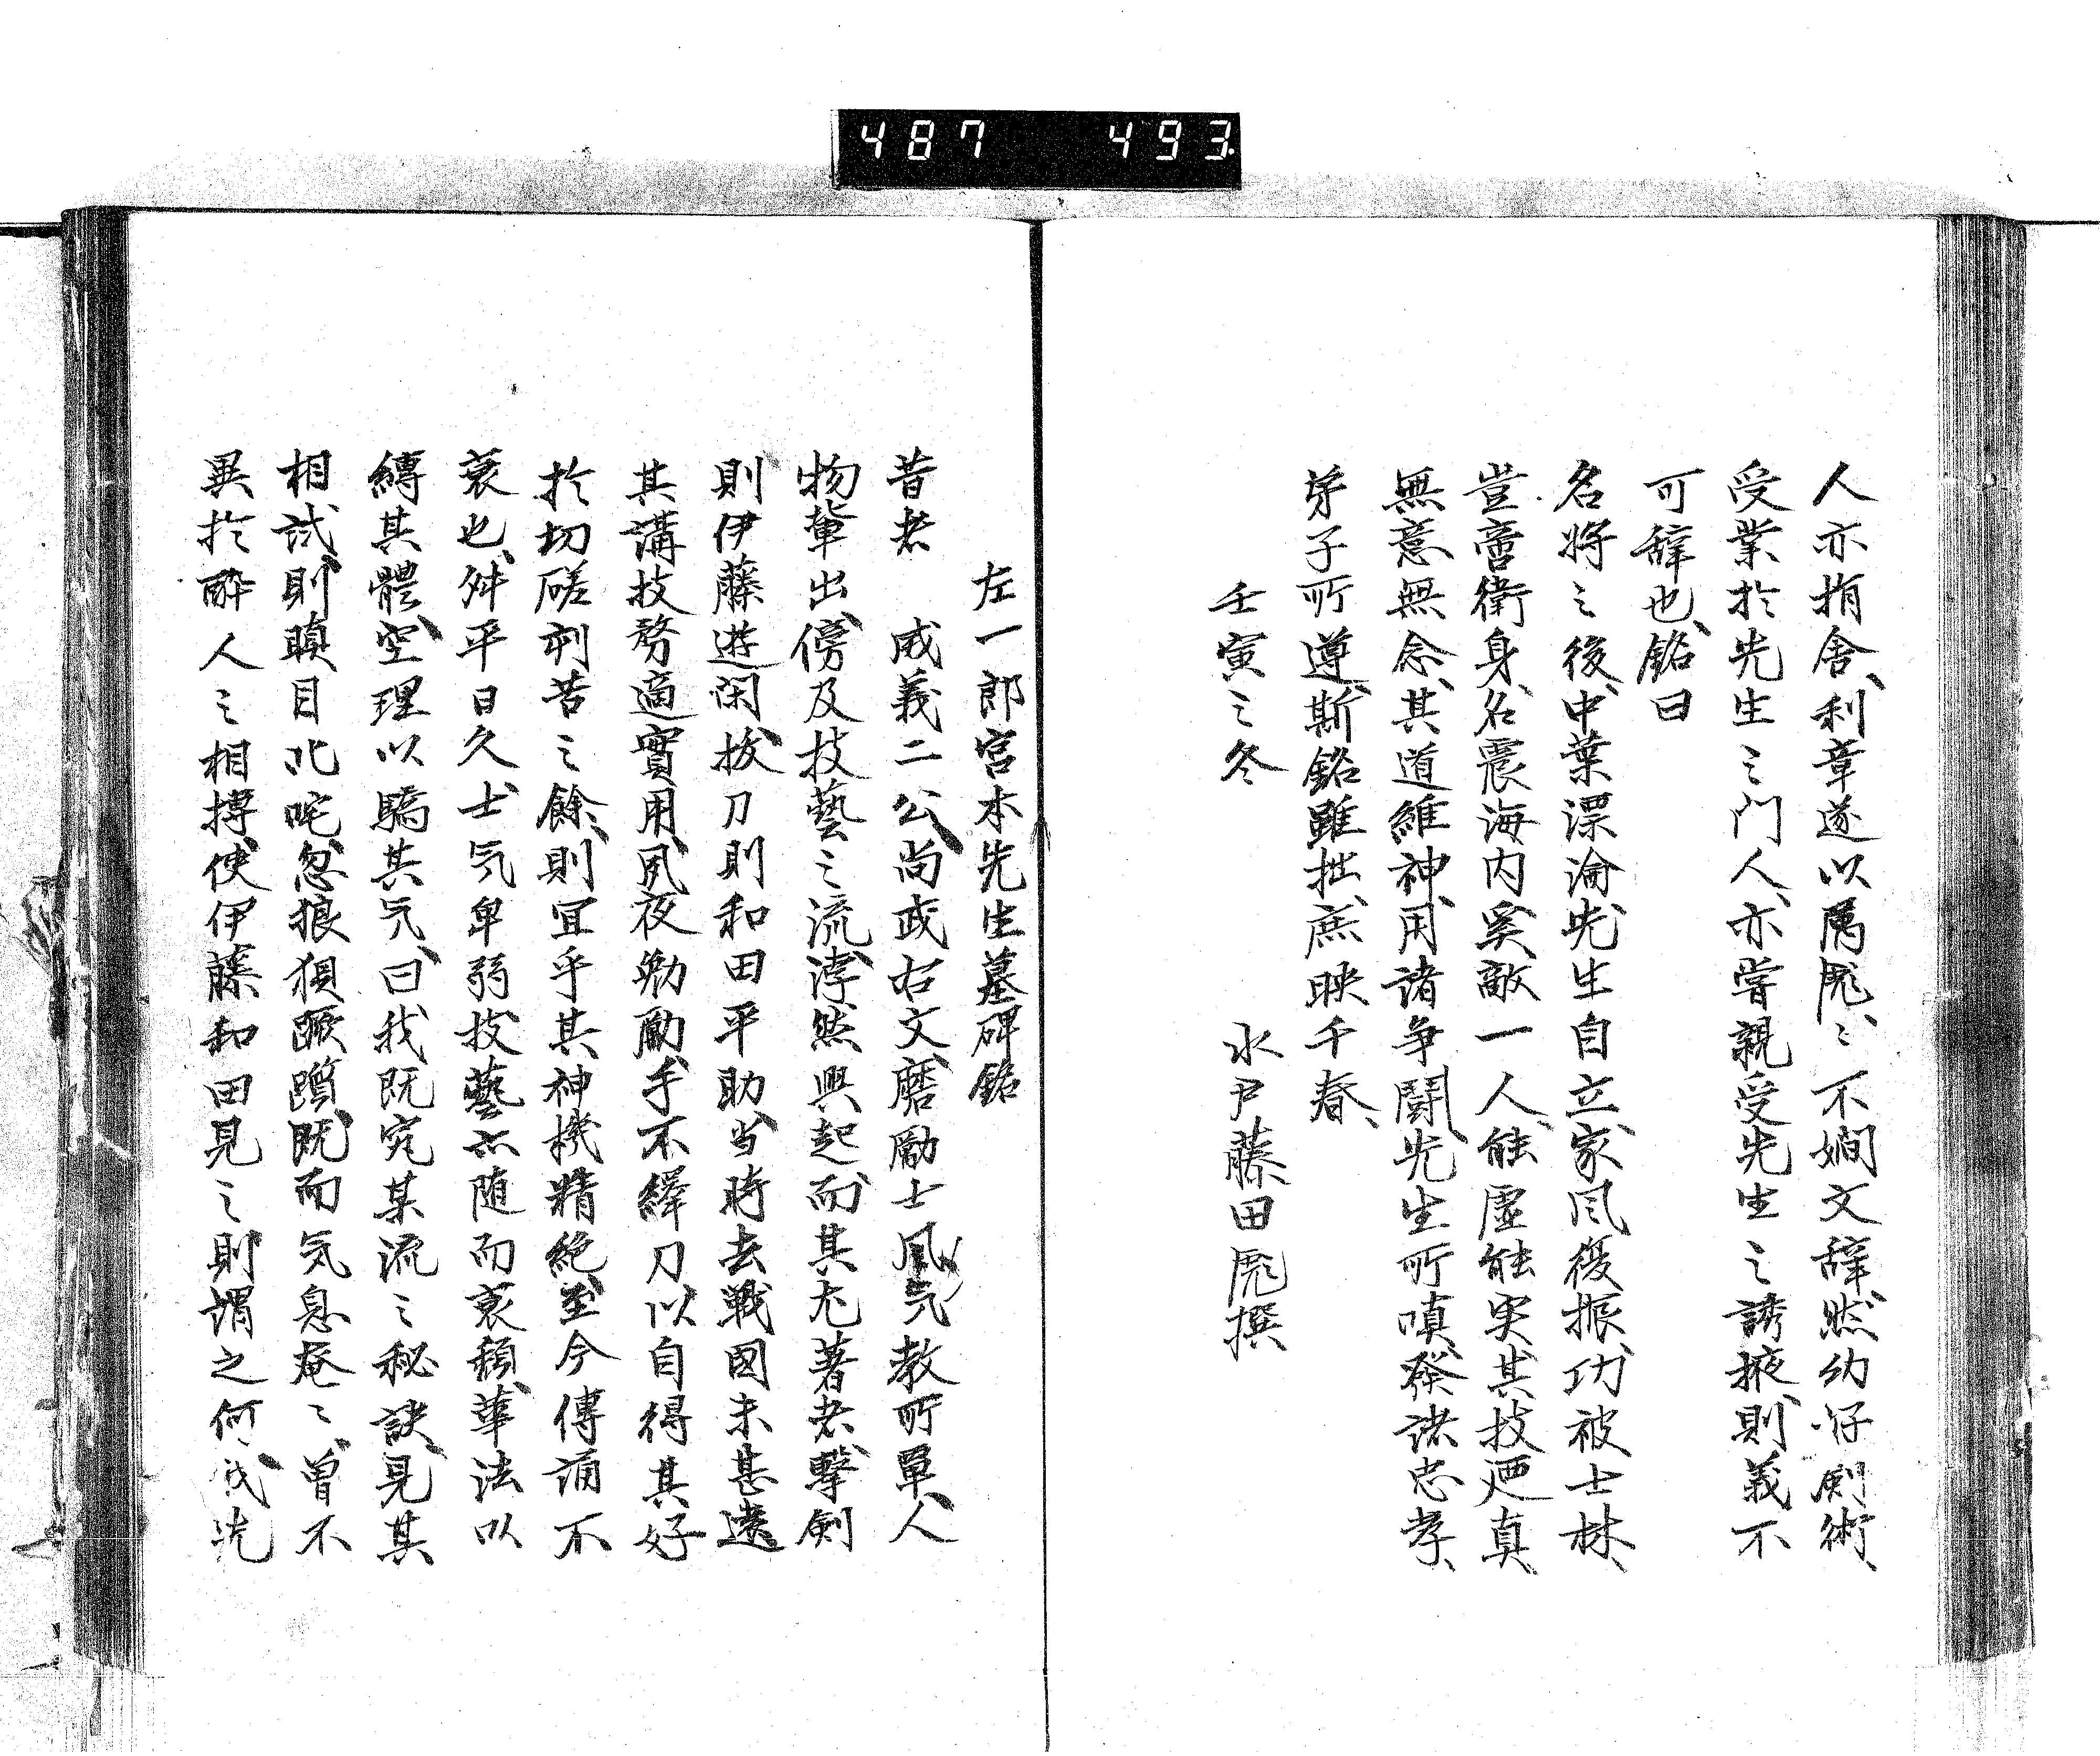 487 493
人亦捐舎、利章遂以属彪、彪不嫺文辞、然幼好剣術、
受業於先生之門人、亦嘗親受先生之誘掖、則義不
可辞也、銘曰
名将之後、中葉漂淪、先生自立、家風復振、功被士林、
豈啻衛身、名震海内、奚敵一人、能虚能実、其技廼真、
無意無念、其道維神、用諸争闘、先生所嗔、発諸忠孝、
弟子所遵、斯銘雖拙、庶映千春、
壬寅之冬 水戸藤田彪撰
左一郎宮本先生墓碑銘
昔者 威義二公、尚武右文、磨励士風、気教所単、人
物輩出、傍及技藝之流、浡然興起、而其尤著者、撃剣
則伊藤遊閑、抜刀則和田平助、当時去戦国未甚遠
其講技務適實用、夙夜勉勵、手不繹刀、以自得其好
於切磋刻苦之餘、則冝乎其神機精絶、至今傳誦不
衰也、舛平日久、士気卑弱、技藝亦随而衰頽、華法以
縛其體、空理以驕其気、曰、我既究某流之秘訣、見其
相試、則瞋目叱咤、忽狼狽蹶躓、既而気息奄々、曽不
異於酔人之相搏、使伊藤和田見之、則謂之何、我先